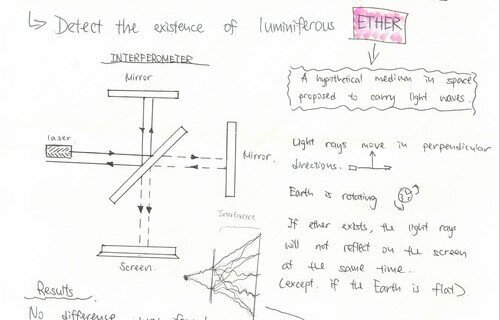 ↳ Detect the existence of luminiferous ETHER
INTERFEROMETER
Mirror
laser
Mirror.
Screen.
Interference
A hypothetical medium in space
proposed to carry light waves.
Light rays move in perpendicular
directions.
Earth is rotating
If ether exists, the light rays
will not reflect on the screen
at the same time.
(except if the Earth is flat)
Results
No difference was found